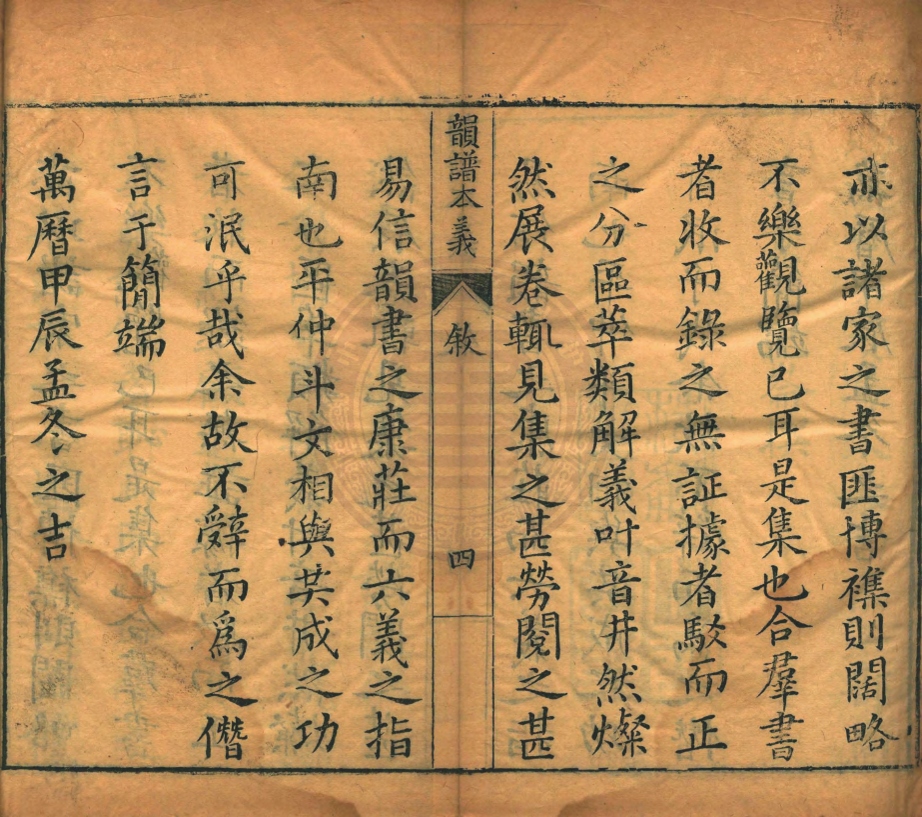 亦以諸家之書匪博襍則闊略
不樂觀覽已耳是集也合羣書
者收而錄之無証據者駁而正
之分區萃類解義叶音井然燦
然展卷輒見集之甚勞閱之甚
韻譜本義
敘
四
易信韻書之康莊而六義之指
南也平仲斗文相與共成之功
可泯乎哉余故不辭而爲之僭
言于簡端
萬曆甲辰孟冬之吉